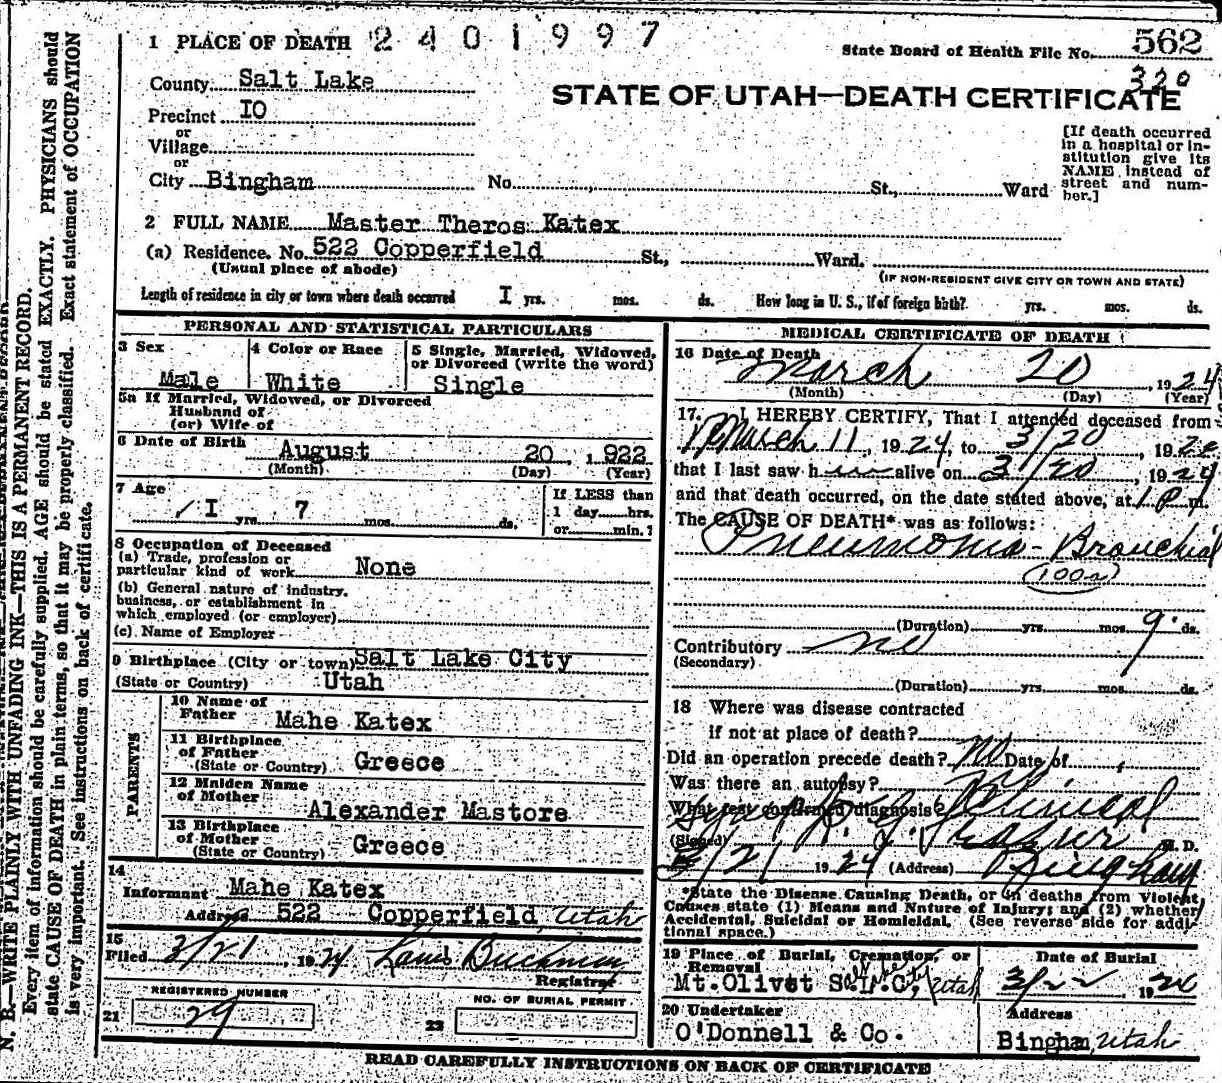 1 PLACE OF DEATH 2401997
State Board of Health File No. 562
320
County Salt Lake
STATE OF UTAH—DEATH CERTIFICATE
Precinct IO
or
Village
or
City Bingham No. , St., Ward
[If death occurred
in a hospital or in-
stitution give its
NAME instead of
street and num-
ber.]
2 FULL NAME Master Theros Katex
(a) Residence. No. 522 Copperfield St., Ward.
(Usual place of abode) (IF NON-RESIDENT GIVE CITY OR TOWN AND STATE)
Length of residence in city or town where death occurred I yrs. mos. ds. How long in U. S., if of foreign birth? yrs. mos. ds.
PERSONAL AND STATISTICAL PARTICULARS
3 Sex Male
4 Color or Race White
5 Single, Married, Widowed,
or Divorced (write the word)
Single
5a If Married, Widowed, or Divorced
Husband of
(or) Wife of
6 Date of Birth August 20, 1922
(Month) (Day) (Year)
7 Age I yrs. 7 mos. ds.
If LESS than
1 day hrs.
or min.?
8 Occupation of Deceased
(a) Trade, profession or
particular kind of work None
(b) General nature of industry,
business, or establishment in
which employed (or employer)
(c) Name of Employer
9 Birthplace (City or town) Salt Lake City
(State or Country) Utah
PARENTS
10 Name of
Father Mahe Katex
11 Birthplace
of Father
(State or Country) Greece
12 Maiden Name
of Mother
Alexander Mastore
13 Birthplace
of Mother
(State or Country) Greece
14
Informant Mahe Katex
Address 522 Copperfield, Utah
15
Filed 3/21, 1924 Louis Buchman
Registrar
REGISTERED NUMBER
21 29
NO. OF BURIAL PERMIT
22
MEDICAL CERTIFICATE OF DEATH
16 Date of Death
March 20, 1924
(Month) (Day) (Year)
17. I HEREBY CERTIFY, That I attended deceased from
March 11, 1924, to 3/20, 192
that I last saw h alive on 3/20, 1924
and that death occurred, on the date stated above, at 1 P m.
The CAUSE OF DEATH* was as follows:
Pneumonia - Bronchial
(100a)
(Duration) yrs. mos. 9 ds.
Contributory no
(Secondary)
(Duration) yrs. mos. ds.
18 Where was disease contracted
if not at place of death?
Did an operation precede death? no Date of ,
Was there an autopsy? no
What test confirmed diagnosis? Clinical
(Signed) M. D.
3/21 1924 (Address) Bingham
*State the Disease Causing Death, or in deaths from Violent
Causes state (1) Means and Nature of Injury; and (2) whether
Accidental, Suicidal or Homicidal. (See reverse side for addi-
tional space.)
19 Place of Burial, Cremation, or
Removal
Mt. Olivet S.L.C. Salt Lake City Utah
Date of Burial
3/22, 192
20 Undertaker
O'Donnell & Co.
Address
Bingham, Utah
READ CAREFULLY INSTRUCTIONS ON BACK OF CERTIFICATE
N. B.—WRITE PLAINLY WITH UNFADING INK—THIS IS A PERMANENT RECORD.
Every item of information should be carefully supplied. AGE should be stated EXACTLY. PHYSICIANS should
state CAUSE OF DEATH in plain terms, so that it may be properly classified. Exact statement of OCCUPATION
is very important. See instructions on back of certificate.